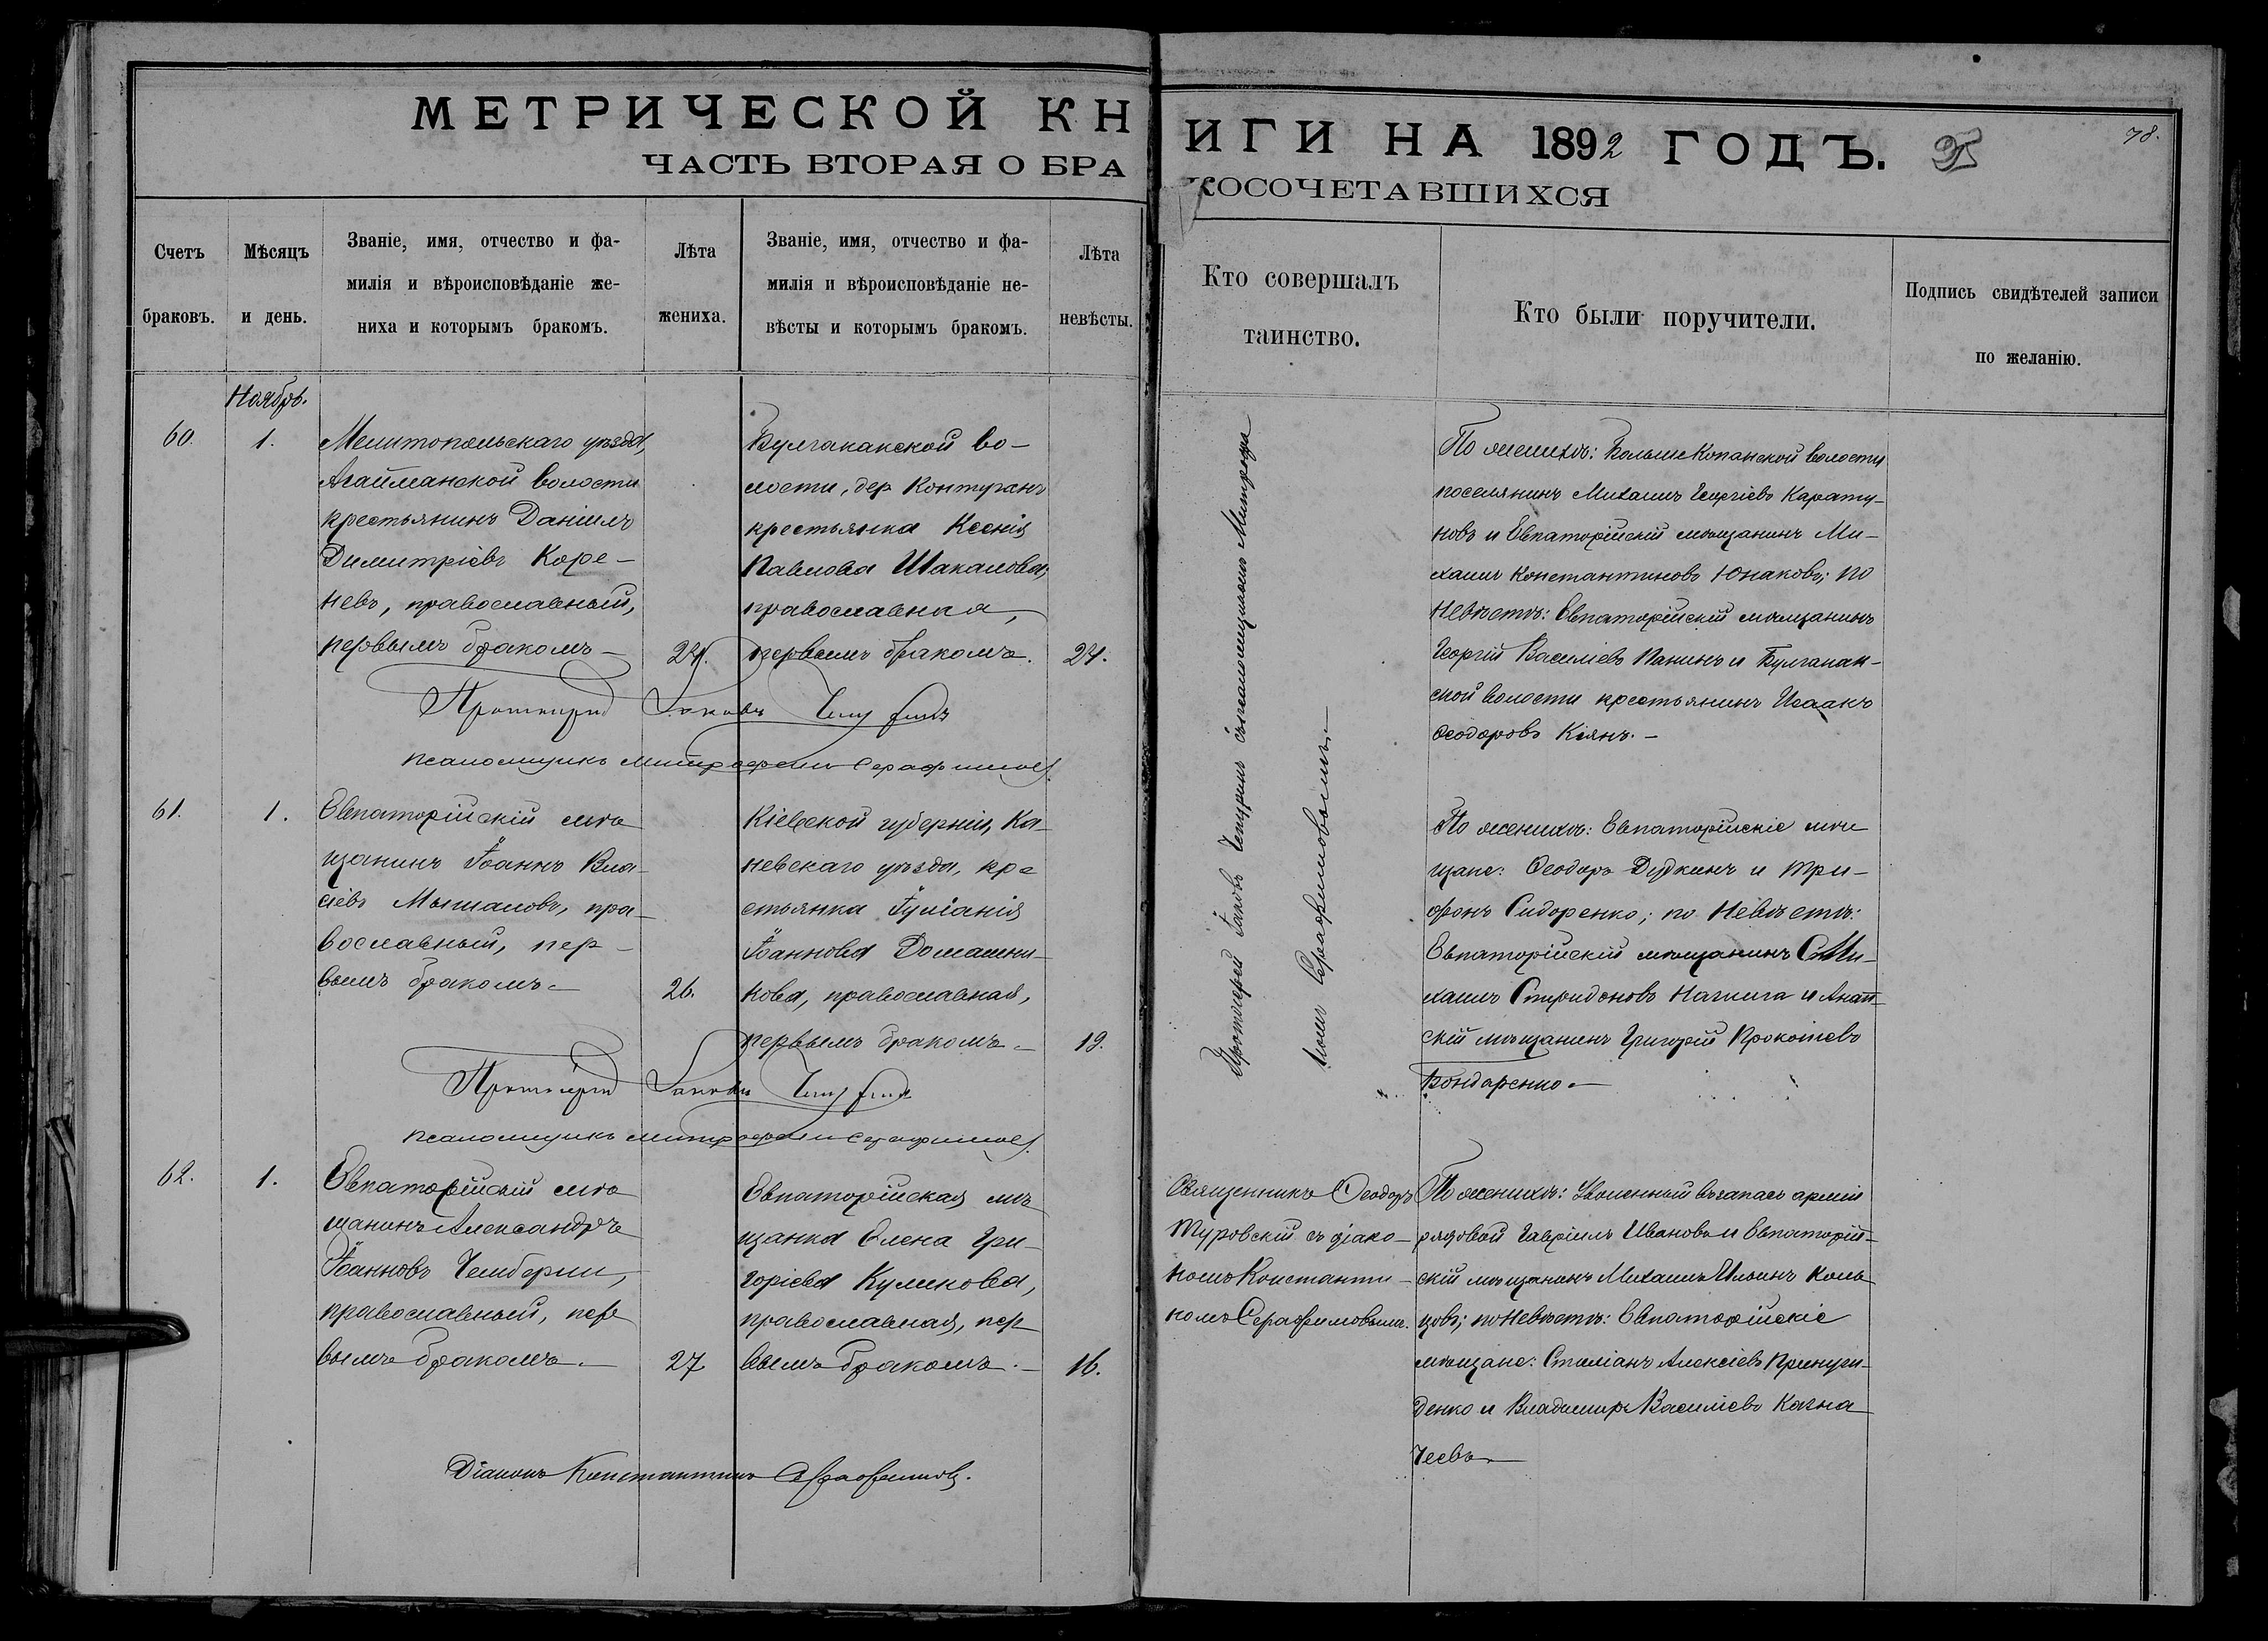 МЕТРИЧЕСКОЙ КНИГИ НА 1892 ГОДЪ.
78.
ЧАСТЬ ВТОРАЯ О БРАКОСОЧЕТАВШИХСЯ
Счетъ
браковъ.
Мѣсяцъ
и день.
Званіе, имя, отчество и фа-
милія и вѣроисповѣданіе же-
ниха и которымъ бракомъ.
Лѣта
жениха.
Званіе, имя, отчество и фа-
милія и вѣроисповѣданіе не-
вѣсты и которымъ бракомъ.
Лѣта
невѣсты.
Кто совершалъ
таинство.
Кто были поручители.
Подпись свидѣтелей записи
по желанію.
Ноябрь.
60.
1.
Мелитопольскаго уѣзда,
Агайманской волости
крестьянинъ Даніилъ
Димитріевъ Коре-
невъ, православный,
первымъ бракомъ
24.
Булганакской во-
лости, дер. Контуганъ
крестьянка Ксенія
Павлова Шакалова,
православная,
первымъ бракомъ.
24.
Протоіерей Іаковъ Чепуринъ съ псаломщикомъ Митрофа
номъ Серафимовымъ
По женихѣ: БольшеКопанской волости
поселянинъ Михаилъ Георгіевъ Карату-
новъ и Евпаторійскій мѣщанинъ Ми-
хаилъ Константиновъ Юнаковъ; по
невѣстѣ: Евпаторійскій мѣщанинъ
Георгій Василіевъ Панинъ и Булганак-
ской волости крестьянинъ Исаакъ
Ѳеодоровъ Кіянъ.
Протоіерей Іаковъ Чепуринъ
Псаломщикъ Митрофанъ Серафимовъ
61.
1.
Евпаторійскій мѣ
щанинъ Іоаннъ Вла-
сіевъ Мышаловъ, пра-
вославный, пер-
вымъ бракомъ
26.
Кіевской губерніи, Ка-
невскаго уѣзда, кре
стьянка Іуліанія
Іоаннова Домашни-
кова, православная,
первымъ бракомъ
19.
По женихѣ: Евпаторійскіе мѣ
щане: Ѳеодоръ Дудкинъ и Три-
фонъ Сидоренко; по невѣстѣ:
Евпаторійскій мѣщанинъ Ми-
хаилъ Спиридоновъ и Анап-
скій мѣщанинъ Григорій Прокопіевъ
Бондаренко
Протоіерей Іаковъ Чепуринъ
Псаломщикъ Митрофанъ Серафимовъ
62.
1.
Евпаторійскій мѣ
щанинъ Александръ
Іоанновъ Чемберджи,
православный, пер
вымъ бракомъ.
27.
Евпаторійская мѣ
щанка Елена Гри-
горіева Куликова,
православная, пер
вымъ бракомъ.
16.
Священникъ Ѳеодоръ
Туровскій съ діако-
номъ Константи-
номъ Серафимовымъ.
По женихѣ: Уволенный въ запасъ арміи
рядовой Гавріилъ Ивановъ и Евпаторій-
скій мѣщанинъ Михаилъ Ильинъ Коль
цовъ; по невѣстѣ: Евпаторійскіе
мѣщане: Стиліанъ Алексіевъ
денко и Владимиръ Василіевъ Казна
чеевъ
Діаконъ Константинъ Серафимовъ.